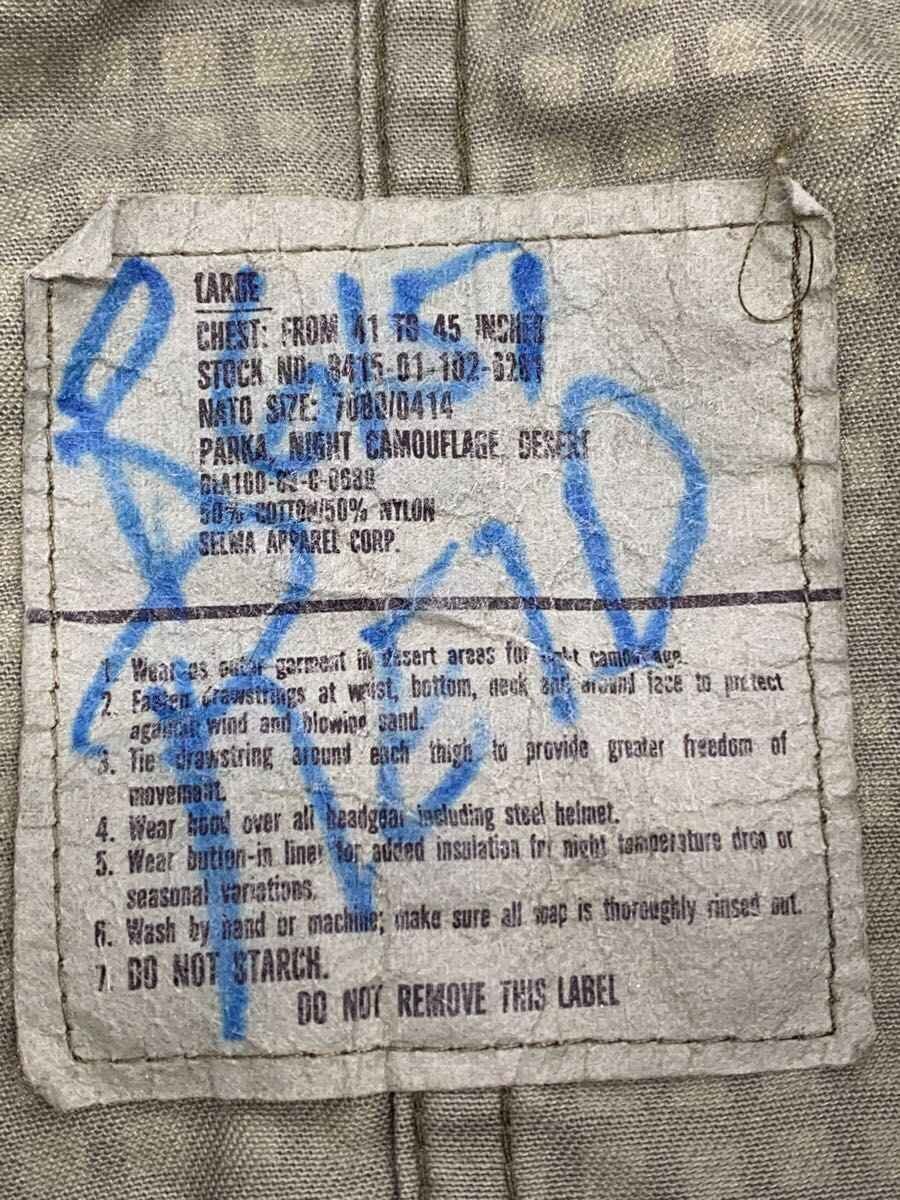 LARGE
CHEST: FROM 41 TO 45 INCHES
STOCK NO: 8415-01-102-
NATO SIZE: 7080/0414
PARKA, NIGHT CAMOUFLAGE, DESERT
50% COTTON/50% NYLON
SELMA APPAREL CORP.
1. Wear as outer garment in desert areas for night camouflage.
2. Fasten drawstrings at waist, bottom, neck and around face to protect
against wind and blowing sand.
3. Tie drawstring around each thigh to provide greater freedom of
movement.
4. Wear hood over all headgear including steel helmet.
5. Wear button-in liner for added insulation for night temperature drop or
seasonal variations.
6. Wash by hand or machine; make sure all soap is thoroughly rinsed out.
7. DO NOT STARCH.
DO NOT REMOVE THIS LABEL